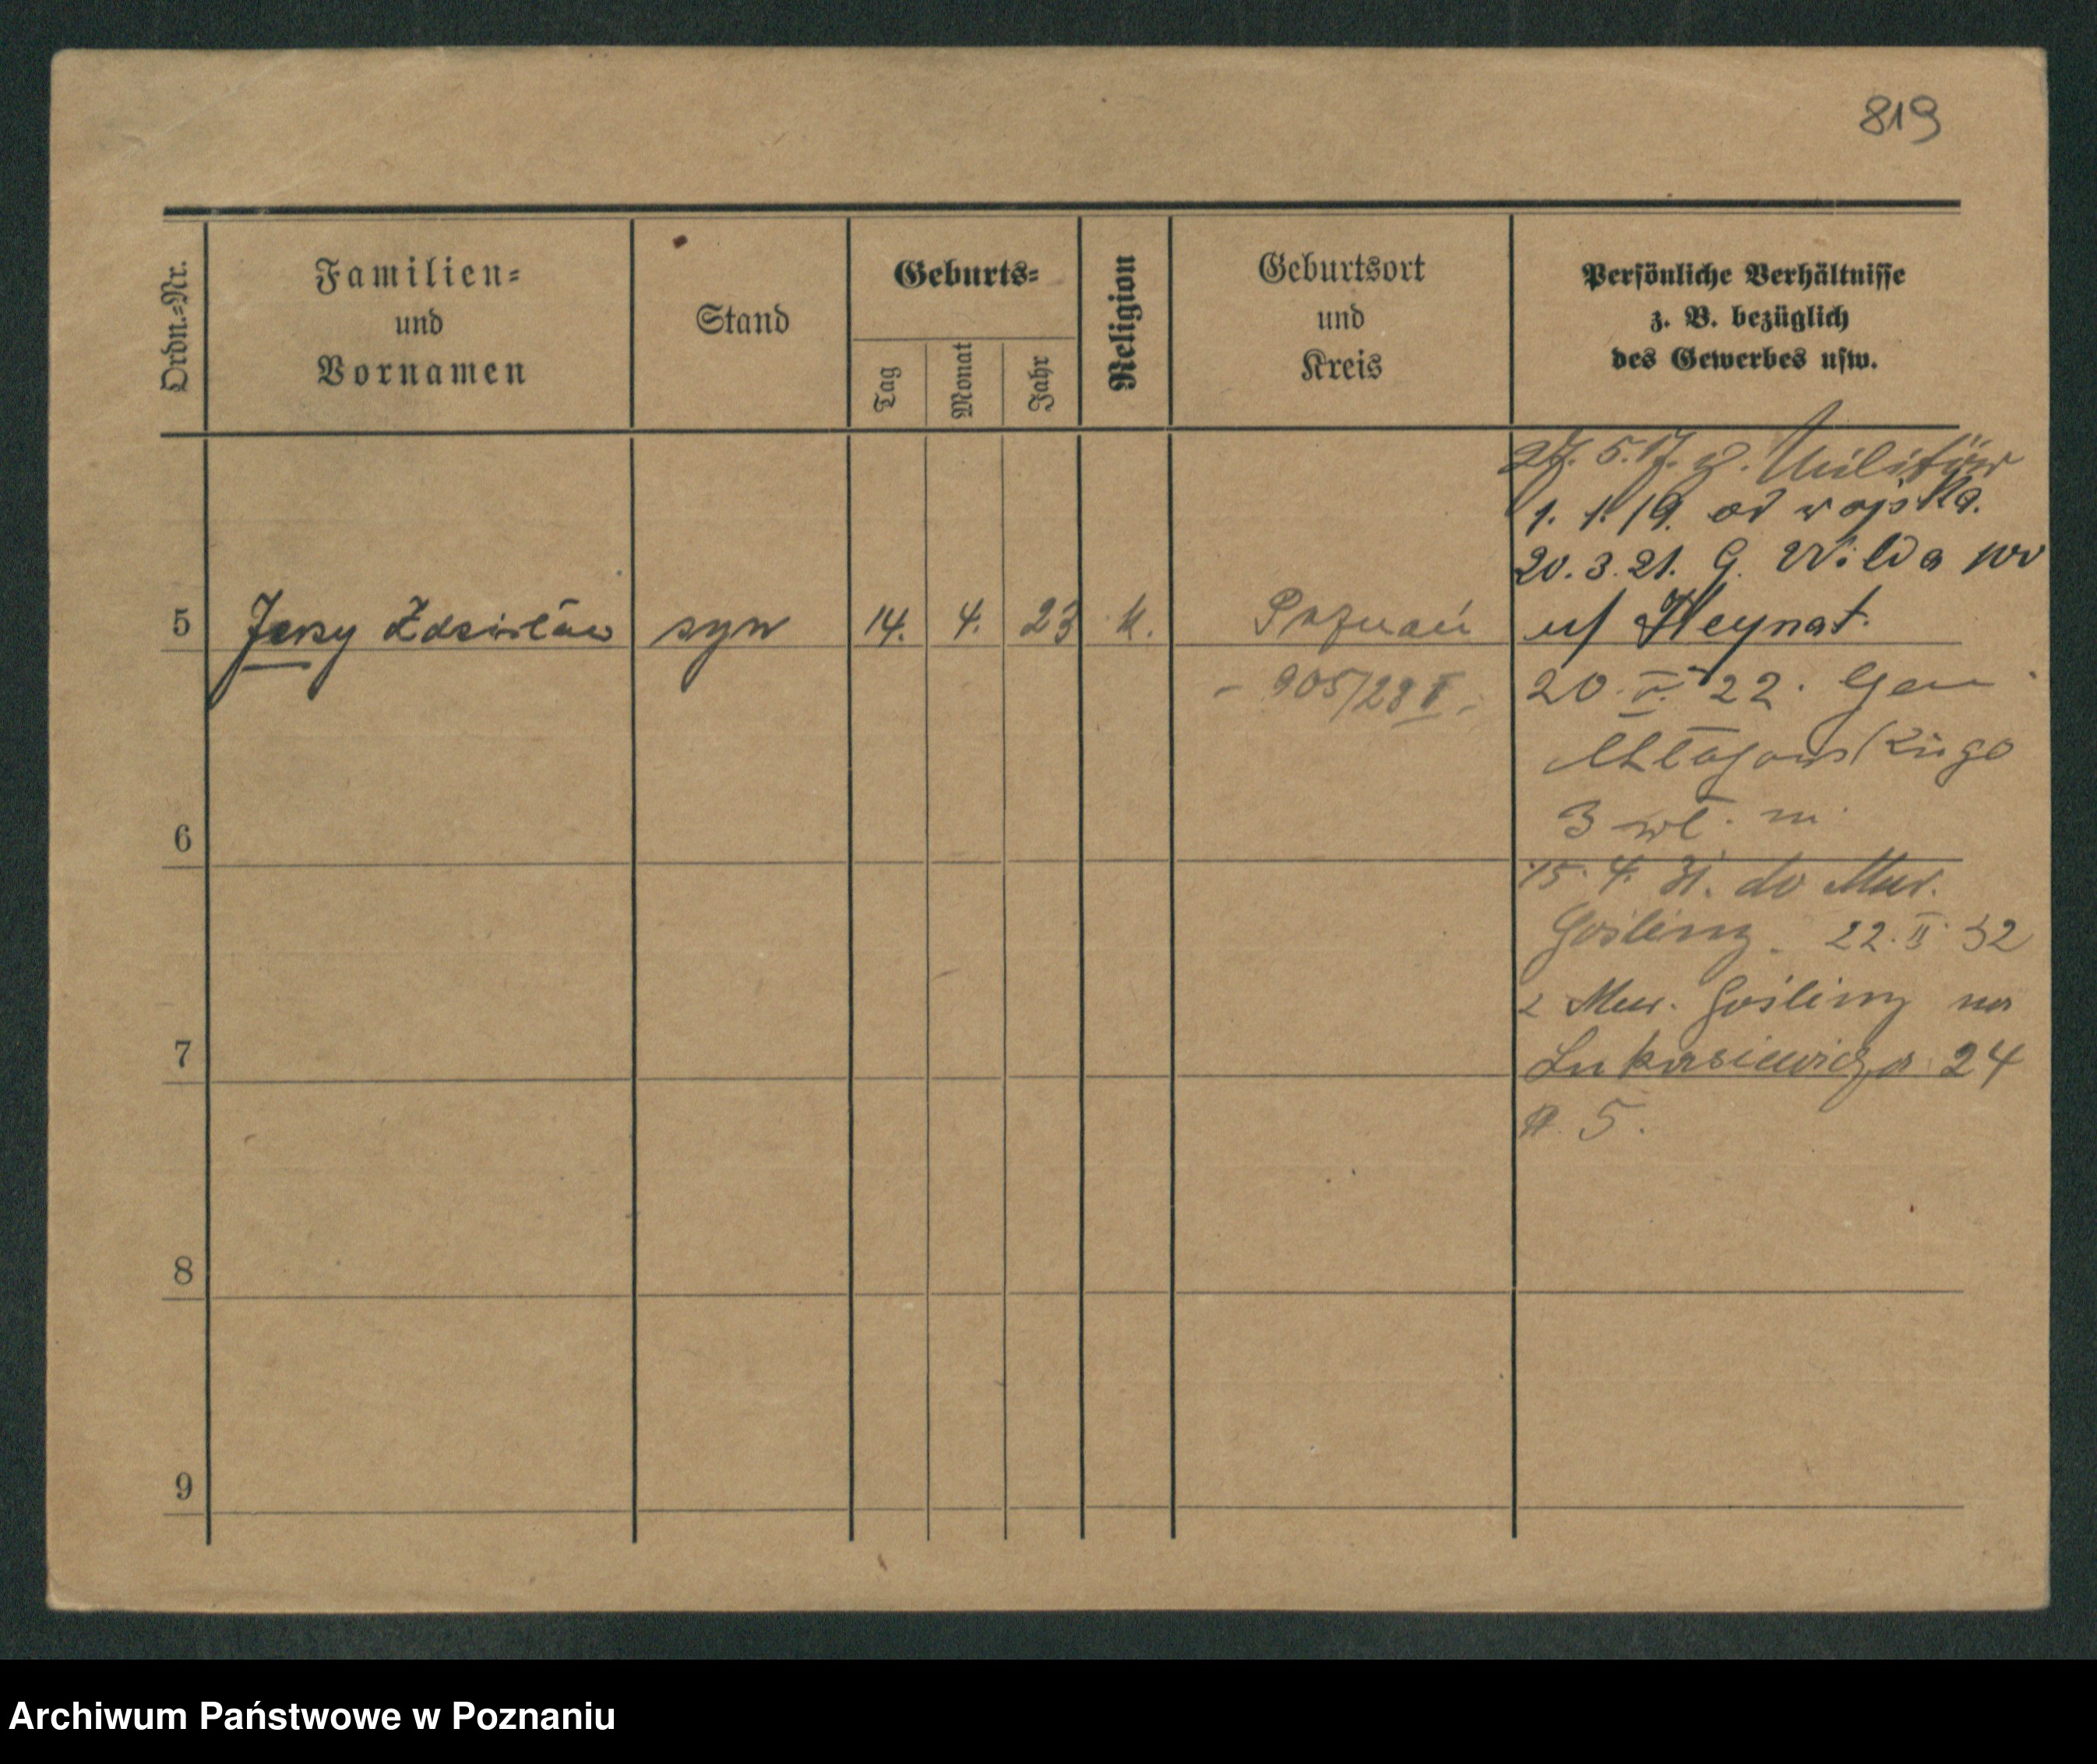 819
Ordn.=Nr.
Familien=
und
Vornamen
Stand
Geburts=
Tag
Monat
Jahr
Religion
Geburtsort
und
Kreis
Persönliche Verhältnisse
z. B. bezüglich
des Gewerbes usw.
27. 5. 17. z. Militär
1. 1. 19. od wojska.
20. 3. 21. G. Wilda
5 Jerzy Zdzisław syn 14. 4. 23 k. Poznań u/ Heynat.
- 905/23 II - 20. V. 22. Gen
3 wł. m.
6
15. 4. 31. do Mur.
Gośliny. 22. II 32
z Mur. Gośliny na
7 Łukasiewicza 24
5.
8
9
Archiwum Państwowe w Poznaniu